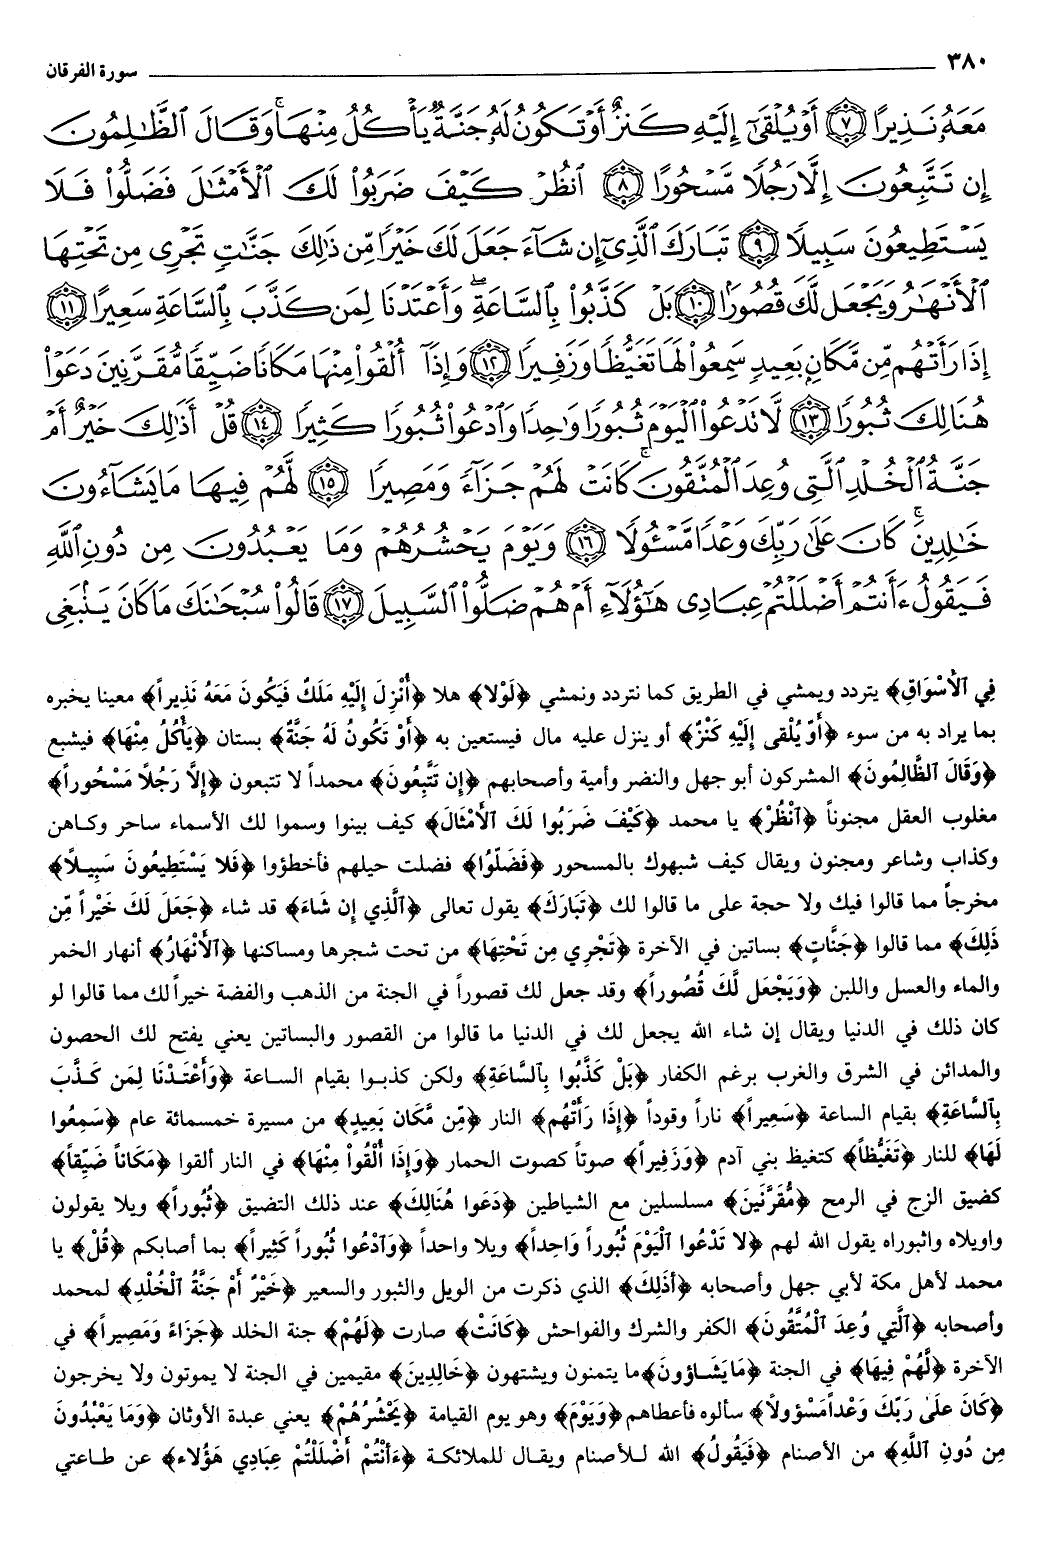 ٣٨٠ سورة الفرقان
مَعَهُۥ نَذِيرًا ٧ أَوْ يُلْقَىٰٓ إِلَيْهِ كَنزٌ أَوْ تَكُونُ لَهُۥ جَنَّةٌ يَأْكُلُ مِنْهَا ۚ وَقَالَ ٱلظَّٰلِمُونَ
إِن تَتَّبِعُونَ إِلَّا رَجُلًا مَّسْحُورًا ٨ ٱنظُرْ كَيْفَ ضَرَبُوا۟ لَكَ ٱلْأَمْثَٰلَ فَضَلُّوا۟ فَلَا
يَسْتَطِيعُونَ سَبِيلًا ٩ تَبَارَكَ ٱلَّذِىٓ إِن شَآءَ جَعَلَ لَكَ خَيْرًا مِّن ذَٰلِكَ جَنَّٰتٍ تَجْرِى مِن تَحْتِهَا
ٱلْأَنْهَٰرُ وَيَجْعَل لَّكَ قُصُورًۢا ١٠ بَلْ كَذَّبُوا۟ بِٱلسَّاعَةِ ۖ وَأَعْتَدْنَا لِمَن كَذَّبَ بِٱلسَّاعَةِ سَعِيرًا ١١
إِذَا رَأَتْهُم مِّن مَّكَانٍۭ بَعِيدٍ سَمِعُوا۟ لَهَا تَغَيُّظًا وَزَفِيرًا ١٢ وَإِذَآ أُلْقُوا۟ مِنْهَا مَكَانًا ضَيِّقًا مُّقَرَّنِينَ دَعَوْا۟
هُنَالِكَ ثُبُورًا ١٣ لَّا تَدْعُوا۟ ٱلْيَوْمَ ثُبُورًا وَٰحِدًا وَٱدْعُوا۟ ثُبُورًا كَثِيرًا ١٤ قُلْ أَذَٰلِكَ خَيْرٌ أَمْ
جَنَّةُ ٱلْخُلْدِ ٱلَّتِى وُعِدَ ٱلْمُتَّقُونَ ۚ كَانَتْ لَهُمْ جَزَآءً وَمَصِيرًا ١٥ لَّهُمْ فِيهَا مَا يَشَآءُونَ
خَٰلِدِينَ ۚ كَانَ عَلَىٰ رَبِّكَ وَعْدًا مَّسْـُٔولًا ١٦ وَيَوْمَ يَحْشُرُهُمْ وَمَا يَعْبُدُونَ مِن دُونِ ٱللَّهِ
فَيَقُولُ ءَأَنتُمْ أَضْلَلْتُمْ عِبَادِى هَٰٓؤُلَآءِ أَمْ هُمْ ضَلُّوا۟ ٱلسَّبِيلَ ١٧ قَالُوا۟ سُبْحَٰنَكَ مَا كَانَ يَنۢبَغِى
فِي ٱلْأَسْوَاقِ﴾ يتردد ويمشي في الطريق كما نتردد ونمشي ﴿لَوْلا﴾ هلا ﴿أُنْزِلَ إِلَيْهِ مَلَكٌ فَيَكُونَ مَعَهُ نَذِيراً﴾ معينا يخبره
بما يراد به من سوء ﴿أَوْ يُلْقى إِلَيْهِ كَنْزٌ﴾ أو ينزل عليه مال فيستعين به ﴿أَوْ تَكُونُ لَهُ جَنَّةٌ﴾ بستان ﴿يَأْكُلُ مِنْهَا﴾ فيشبع
﴿وَقَالَ ٱلظَّالِمُونَ﴾ المشركون أبو جهل والنضر وأمية وأصحابهم ﴿إِن تَتَّبِعُونَ﴾ محمداً لا تتبعون ﴿إِلَّا رَجُلاً مَسْحُوراً﴾
مغلوب العقل مجنوناً ﴿ٱنْظُرْ﴾ يا محمد ﴿كَيْفَ ضَرَبُوا لَكَ ٱلأَمْثَالَ﴾ كيف بينوا وسموا لك الأسماء ساحر وكاهن
وكذاب وشاعر ومجنون ويقال كيف شبهوك بالمسحور ﴿فَضَلُّوا﴾ فضلت حيلهم فأخطؤوا ﴿فَلا يَسْتَطِيعُونَ سَبِيلاً﴾
مخرجاً مما قالوا فيك ولا حجة على ما قالوا لك ﴿تَبَارَكَ﴾ يقول تعالى ﴿ٱلَّذِي إِن شَاءَ﴾ قد شاء ﴿جَعَلَ لَكَ خَيْراً مِّن
ذَلِكَ﴾ مما قالوا ﴿جَنَّاتٍ﴾ بساتين في الآخرة ﴿تَجْرِي مِن تَحْتِهَا﴾ من تحت شجرها ومساكنها ﴿ٱلأَنْهَارُ﴾ أنهار الخمر
والماء والعسل واللبن ﴿وَيَجْعَل لَّكَ قُصُوراً﴾ وقد جعل لك قصوراً في الجنة من الذهب والفضة خيراً لك مما قالوا لو
كان ذلك في الدنيا ويقال إن شاء الله يجعل لك في الدنيا ما قالوا من القصور والبساتين يعني يفتح لك الحصون
والمدائن في الشرق والغرب برغم الكفار ﴿بَلْ كَذَّبُوا بِٱلسَّاعَةِ﴾ ولكن كذبوا بقيام الساعة ﴿وَأَعْتَدْنَا لِمَن كَذَّبَ
بِٱلسَّاعَةِ﴾ بقيام الساعة ﴿سَعِيراً﴾ ناراً وقوداً ﴿إِذَا رَأَتْهُم﴾ النار ﴿مِّن مَّكَان بَعِيدٍ﴾ من مسيرة خمسمائة عام ﴿سَمِعُوا
لَهَا﴾ للنار ﴿تَغَيُّظاً﴾ كتغيظ بني آدم ﴿وَزَفِيراً﴾ صوتاً كصوت الحمار ﴿وَإِذَا أُلْقُواْ مِنْهَا﴾ في النار ألقوا ﴿مَكَاناً ضَيِّقاً﴾
كضيق الزج في الرمح ﴿مُّقَرَّنَينَ﴾ مسلسلين مع الشياطين ﴿دَعَوا هُنَالِكَ﴾ عند ذلك التضيق ﴿ثُبُوراً﴾ ويلا يقولون
واويلاه واثبوراه يقول الله لهم ﴿لا تَدْعُوا ٱلْيَوْمَ ثُبُوراً وَاحِداً﴾ ويلا واحداً ﴿وَٱدْعُوا ثُبُوراً كَثِيراً﴾ بما أصابكم ﴿قُلْ﴾ يا
محمد لأهل مكة لأبي جهل وأصحابه ﴿أَذَلِكَ﴾ الذي ذكرت من الويل والثبور والسعير ﴿خَيْرٌ أَمْ جَنَّةُ ٱلْخُلْدِ﴾ لمحمد
وأصحابه ﴿ٱلَّتِي وُعِدَ ٱلْمُتَّقُونَ﴾ الكفر والشرك والفواحش ﴿كَانَتْ﴾ صارت ﴿لَهُمْ﴾ جنة الخلد ﴿جَزَاءً وَمَصِيراً﴾ في
الآخرة ﴿لَّهُمْ فِيهَا﴾ في الجنة ﴿مَا يَشَاؤونَ﴾ ما يتمنون ويشتهون ﴿خَالِدِينَ﴾ مقيمين في الجنة لا يموتون ولا يخرجون
﴿كَانَ عَلَىٰ رَبِّكَ وَعْداً مَسْؤولاً﴾ سألوه فأعطاهم ﴿وَيَوْمَ﴾ وهو يوم القيامة ﴿يَحْشُرُهُمْ﴾ يعني عبدة الأوثان ﴿وَمَا يَعْبُدُونَ
مِن دُونِ ٱللَّهِ﴾ من الأصنام ﴿فَيَقُولُ﴾ الله للأصنام ويقال للملائكة ﴿ءَأَنْتُمْ أَضْلَلْتُمْ عِبَادِي هَؤُلاء﴾ عن طاعتي